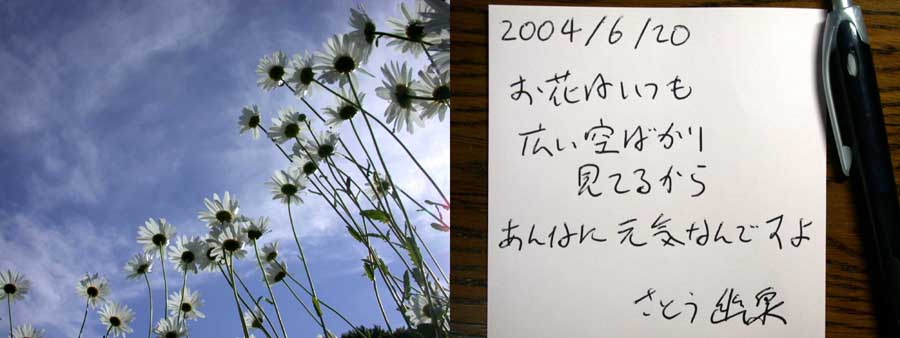 2004/6/20
お花はいつも
広い空ばかり
見てるから
あんなに元気なんですよ
さとう